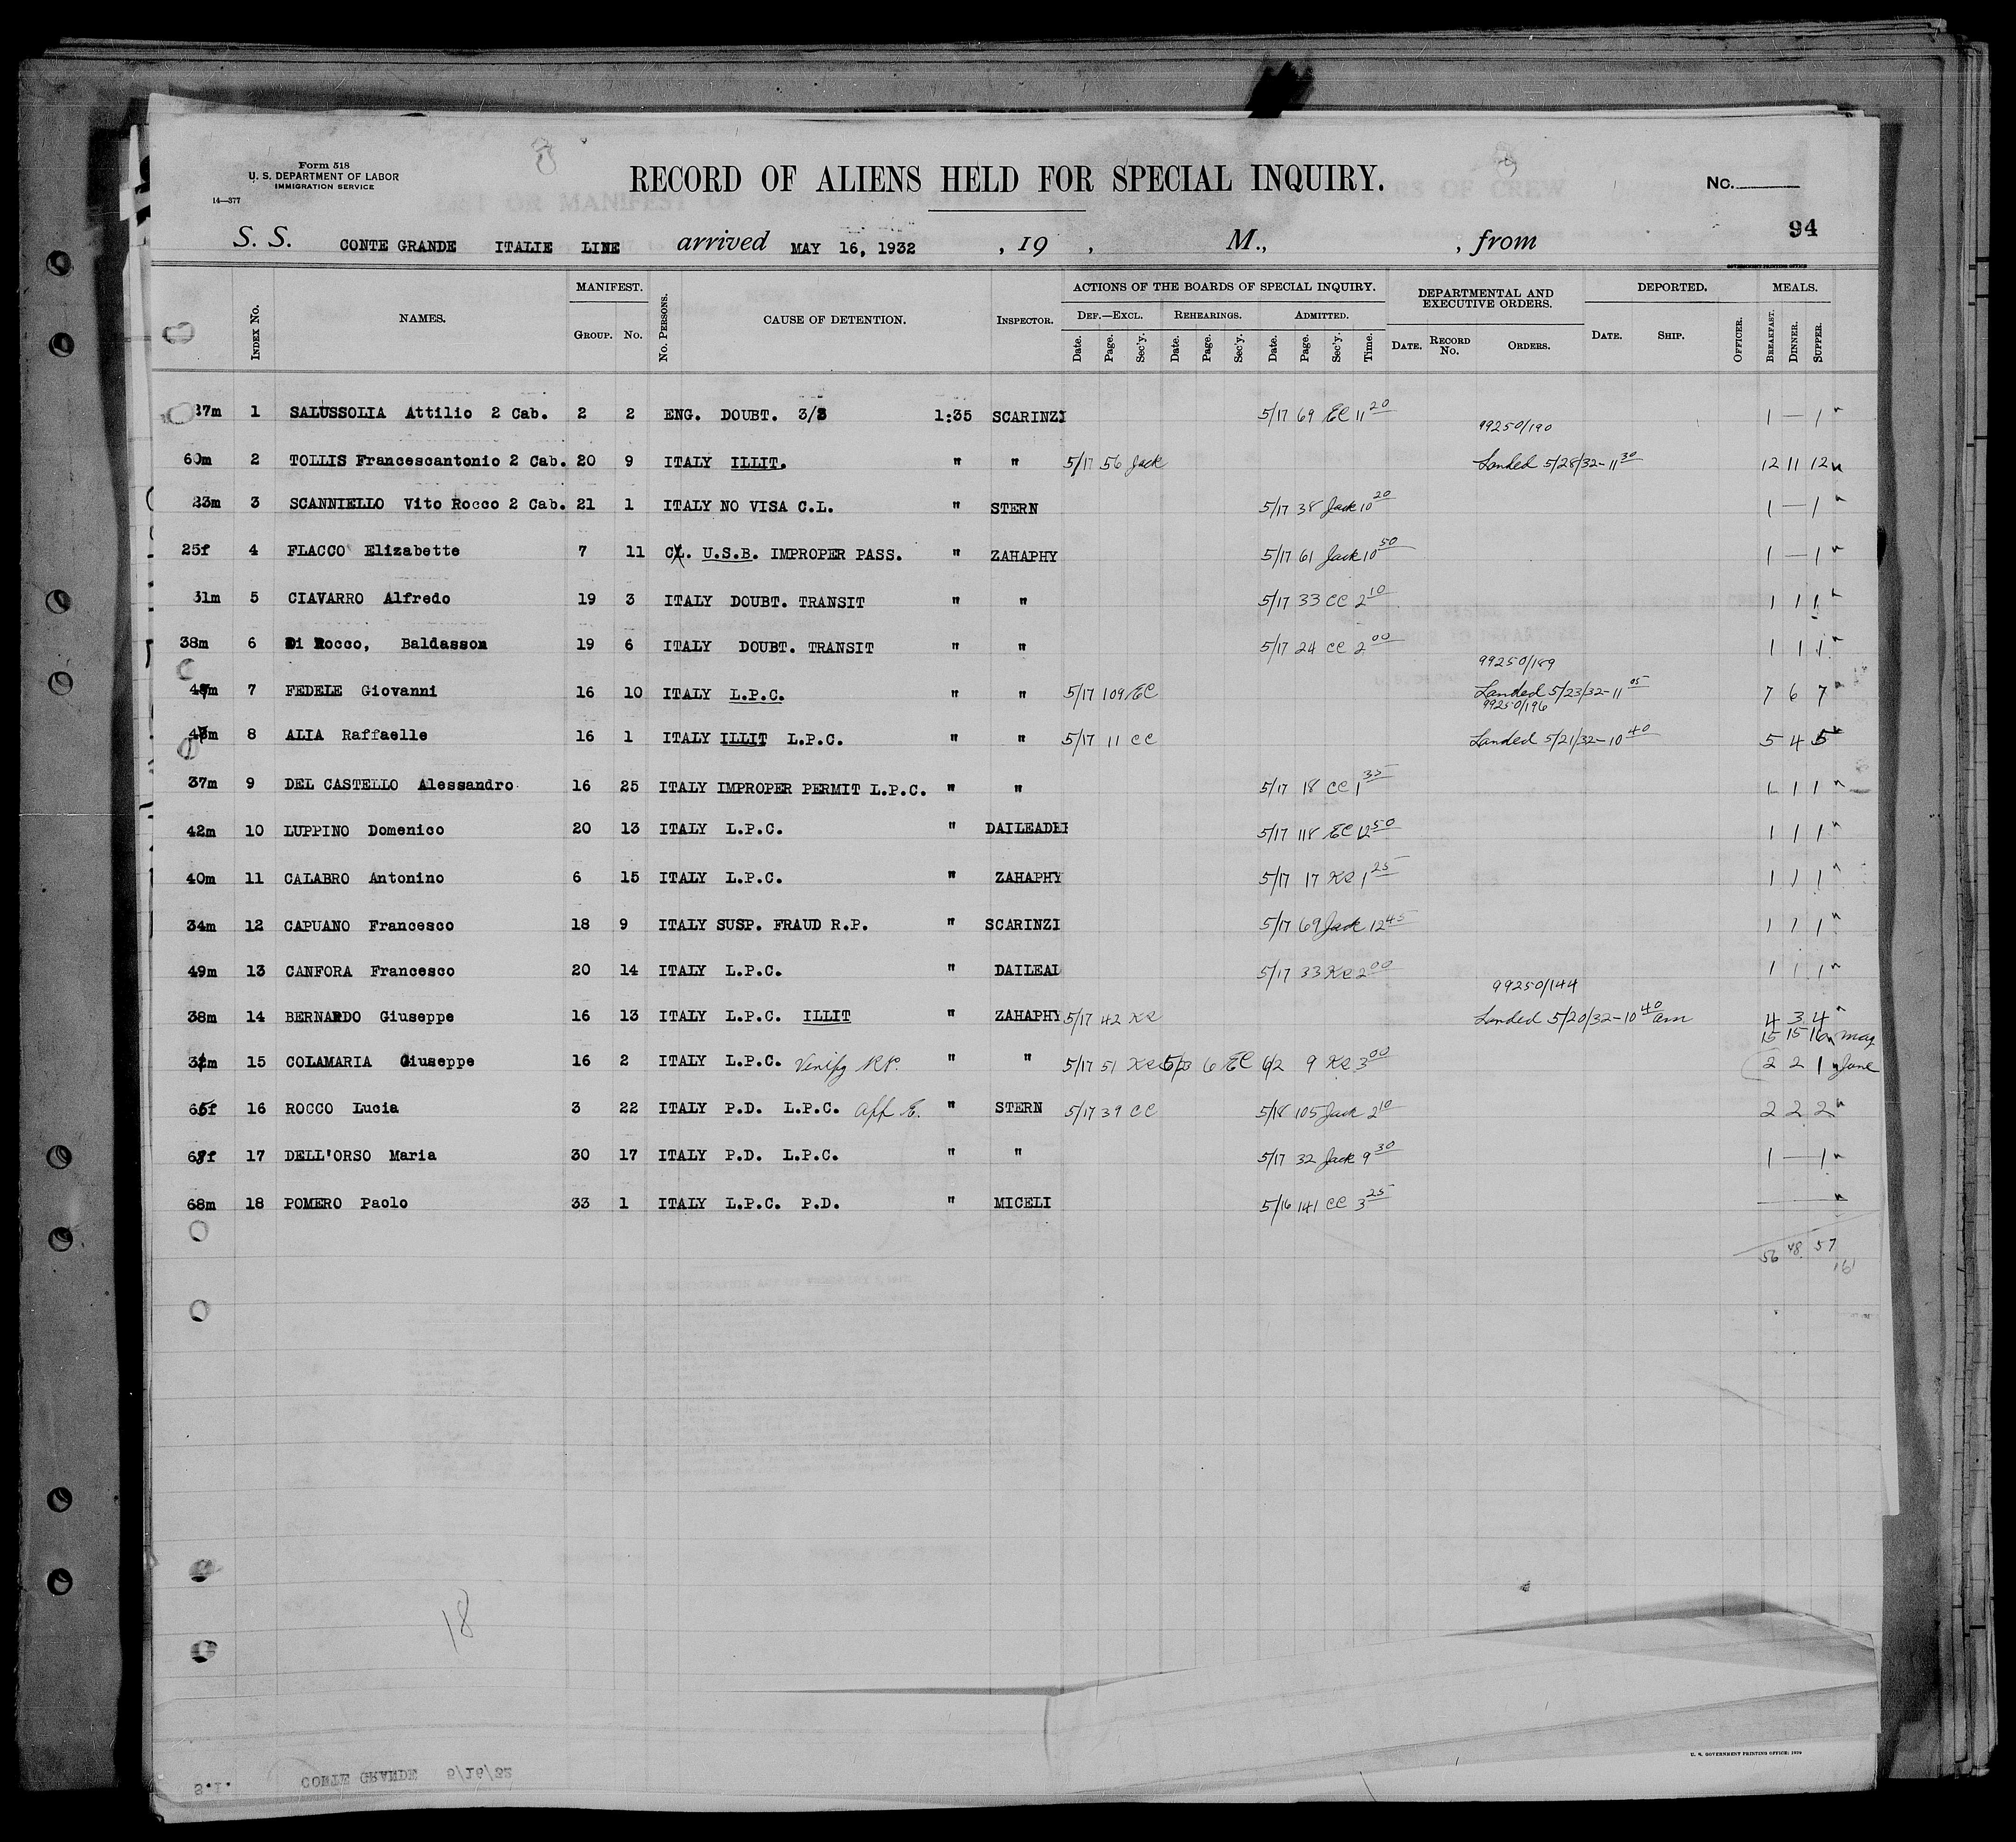 Form 518
U. S. DEPARTMENT OF LABOR
IMMIGRATION SERVICE
14—377
RECORD OF ALIENS HELD FOR SPECIAL INQUIRY.
No.
94
S. S. CONTE GRANDE ITALIE LINE arrived MAY 16, 1932 , 19 , M., , from
GOVERNMENT PRINTING OFFICE
Index No. NAMES. MANIFEST. Group. No. No. Persons. CAUSE OF DETENTION. Inspector. ACTIONS OF THE BOARDS OF SPECIAL INQUIRY. Def.—Excl. Date. Page. Sec'y. Rehearings. Date. Page. Sec'y. Admitted. Date. Page. Sec'y. Time. DEPARTMENTAL AND EXECUTIVE ORDERS. Date. Record No. Orders. DEPORTED. Date. Ship. Officer. MEALS. Breakfast. Dinner. Supper.
37m 1 SALUSSOLIA Attilio 2 Cab. 2 2 ENG. DOUBT. 3/3 1:35 SCARINZI 5/17 69 EC 11 20 1 — 1
99250/190
60m 2 TOLLIS Francescantonio 2 Cab. 20 9 ITALY ILLIT. " " 5/17 56 Jack Landed 5/28/32-11 30 12 11 12
23m 3 SCANNIELLO Vito Rocco 2 Cab. 21 1 ITALY NO VISA C.L. " STERN 5/17 38 Jack 10 20 1 — 1
25f 4 FLACCO Elizabette 7 11 CL. U.S.B. IMPROPER PASS. " ZAHAPHY 5/17 61 Jack 10 50 1 — 1
31m 5 CIAVARRO Alfredo 19 3 ITALY DOUBT. TRANSIT " " 5/17 33 CC 2 10 1 1 1
38m 6 Di Rocco, Baldasson 19 6 ITALY DOUBT. TRANSIT " " 5/17 24 CC 2 00 1 1 1
99250/189
7 FEDELE Giovanni 16 10 ITALY L.P.C. " " 5/17 109 EC Landed 5/23/32-11 05 7 6 7
99250/196
8 ALIA Raffaelle 16 1 ITALY ILLIT L.P.C. " " 5/17 11 CC Landed 5/21/32-10 40 5 4 5
37m 9 DEL CASTELLO Alessandro 16 25 ITALY IMPROPER PERMIT L.P.C. " " 5/17 18 CC 1 35 1 1 1
42m 10 LUPPINO Domenico 20 13 ITALY L.P.C. " DAILEADER 5/17 118 EC 12 50 1 1 1
40m 11 CALABRO Antonino 6 15 ITALY L.P.C. " ZAHAPHY 5/17 17 KR 1 25 1 1 1
34m 12 CAPUANO Francesco 18 9 ITALY SUSP. FRAUD R.P. " SCARINZI 5/17 69 Jack 12 45 1 1 1
49m 13 CANFORA Francesco 20 14 ITALY L.P.C. " DAILEAD 5/17 33 KR 2 00 1 1 1
99250/144
38m 14 BERNARDO Giuseppe 16 13 ITALY L.P.C. ILLIT " ZAHAPHY 5/17 42 KR Landed 5/20/32-10 40 am 4 3 4
15 15 16 may
15 COLAMARIA Giuseppe 16 2 ITALY L.P.C. Verify RP. " " 5/17 51 KR 5/23 6 EC 6/2 9 KR 3 00 2 2 1 June
16 ROCCO Lucia 3 22 ITALY P.D. L.P.C. aff E. " STERN 5/17 39 CC 5/18 105 Jack 2 10 2 2 2
17 DELL'ORSO Maria 30 17 ITALY P.D. L.P.C. " " 5/17 32 Jack 9 30 1 — 1
68m 18 POMERO Paolo 33 1 ITALY L.P.C. P.D. " MICELI 5/16 141 CC 3 25
56 48 57
161
18
S.I. CONTE GRANDE 5/16/32
U. S. GOVERNMENT PRINTING OFFICE: 1930